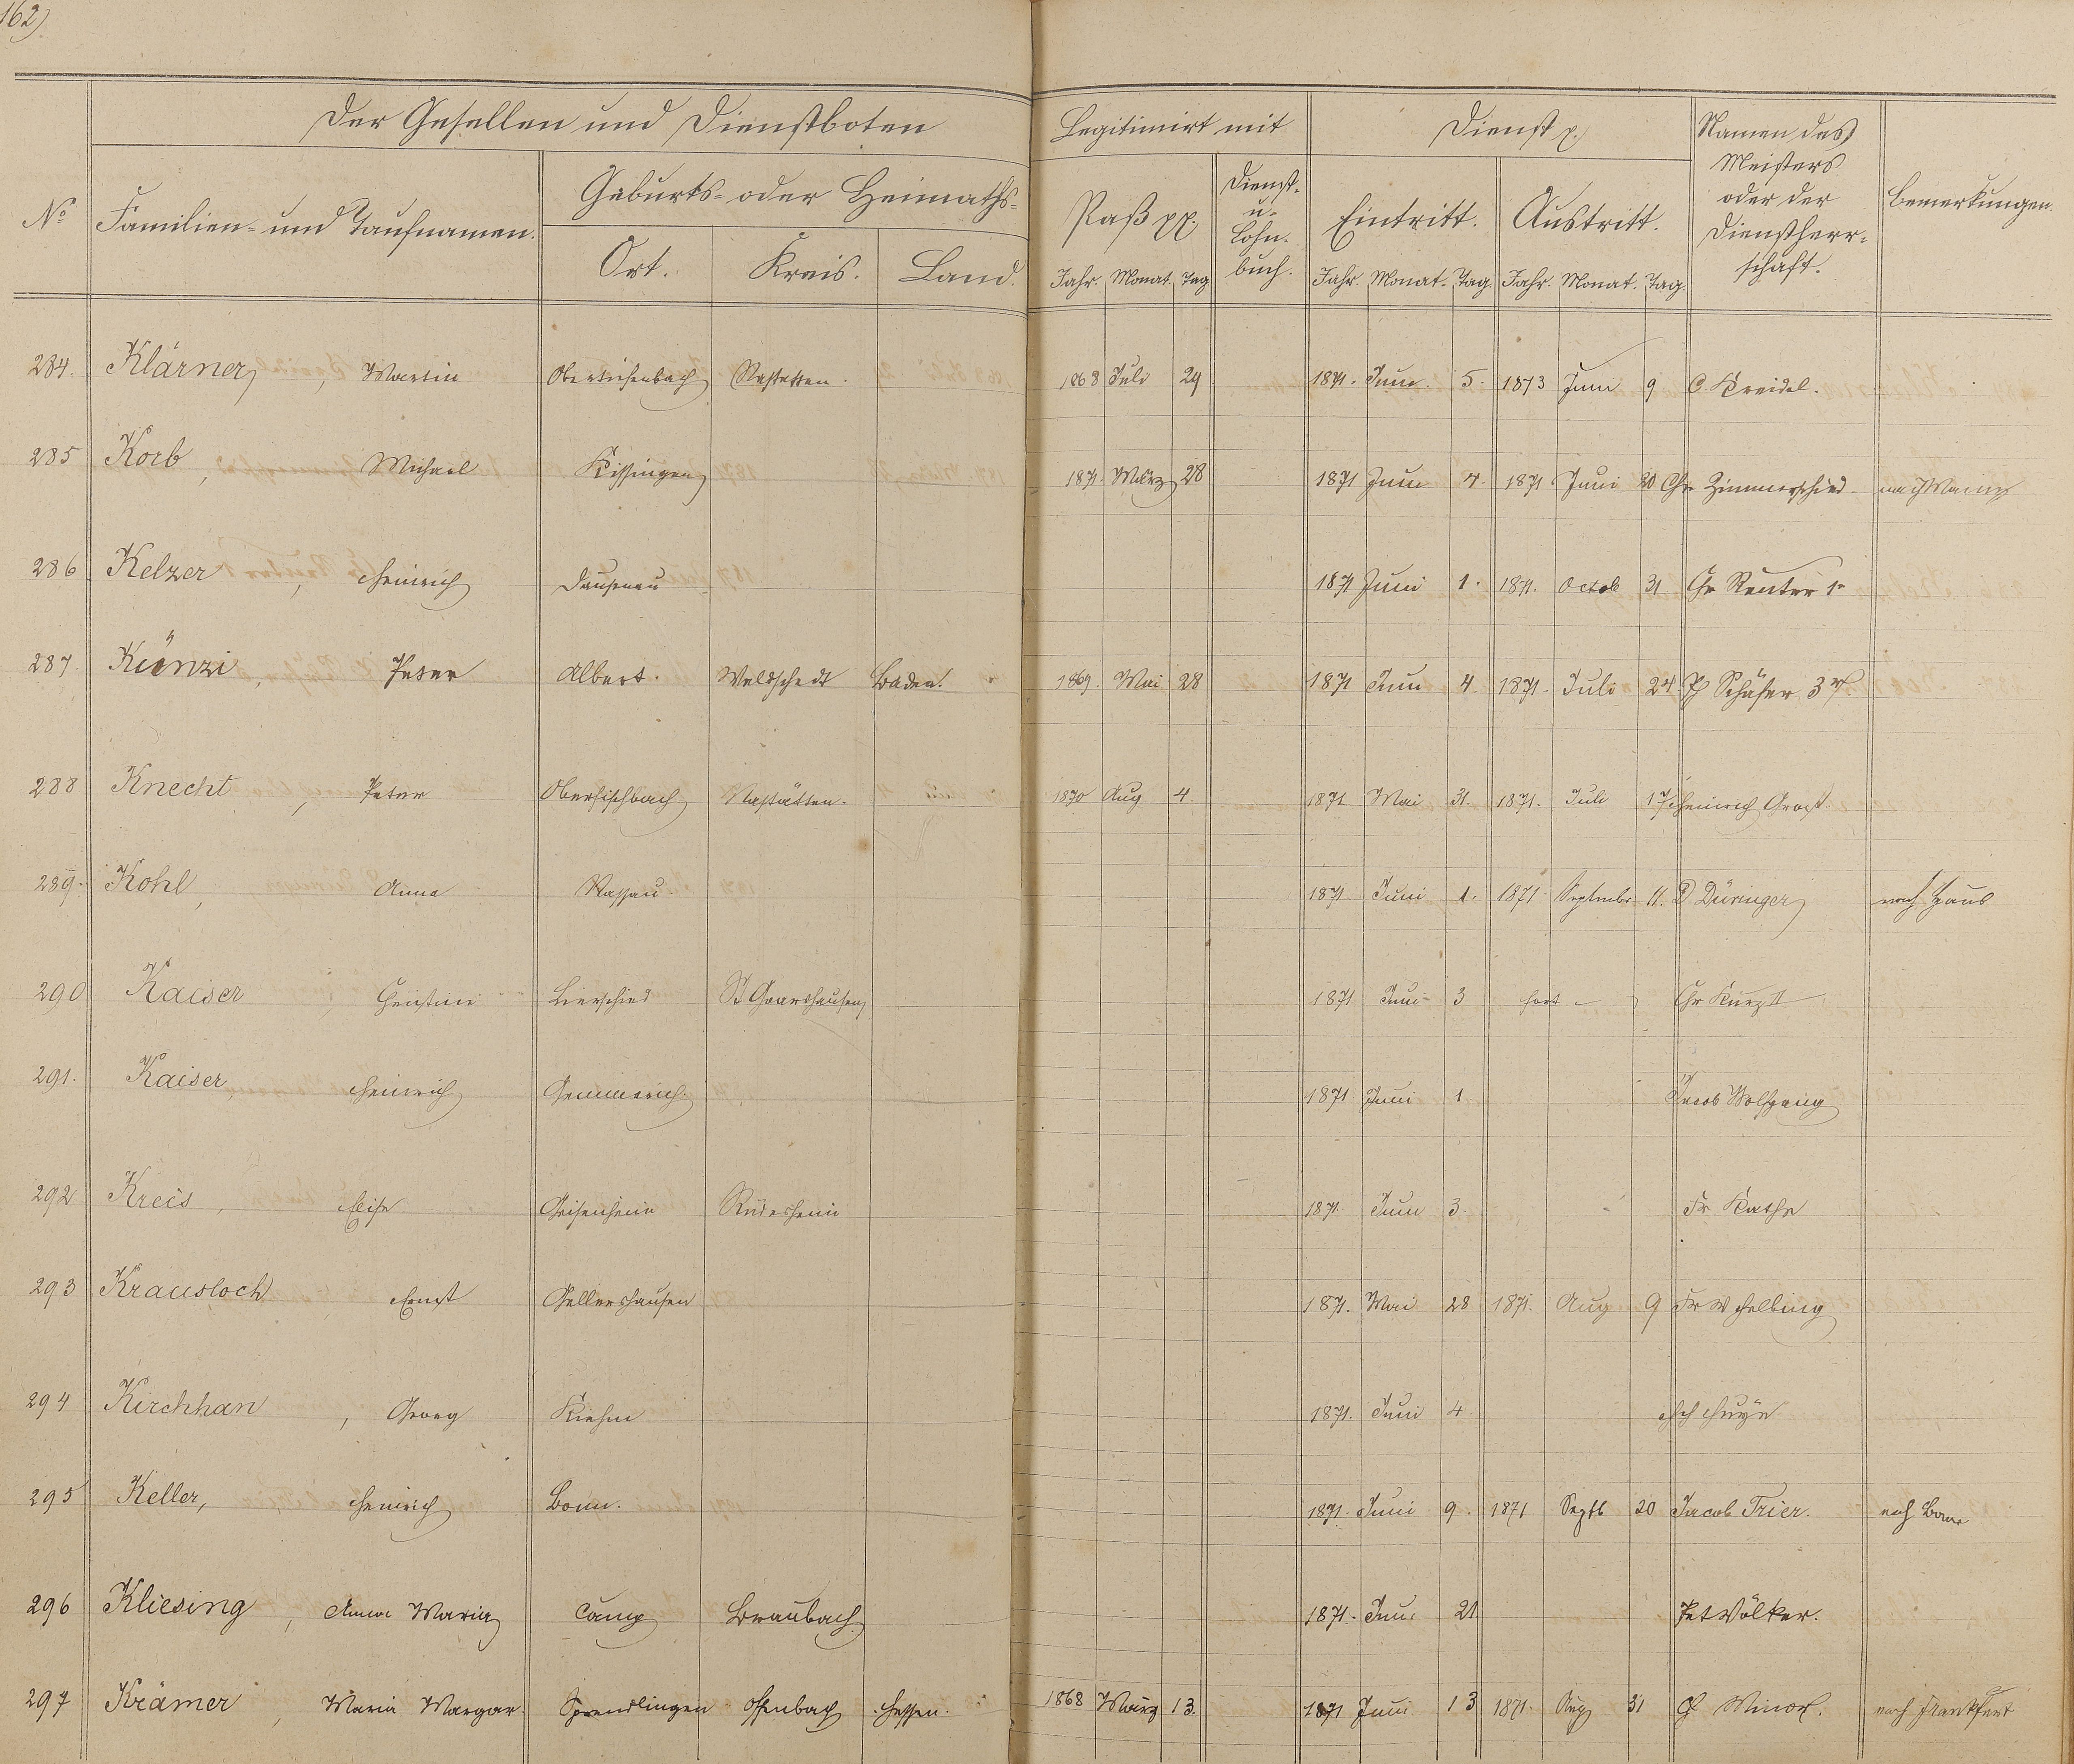 162)
Der Gesellen und Dienstboten
Legitimirt mit
Dienst p.
Namen des Meisters oder der Dienstherr-schaft.
Bemerkungen.
No
Familien- und Taufnamen.
Geburts- oder Heimaths-
Ort. Kreis. Land.
Paß pp.
Dienst- u. Lohn-buch.
Eintritt. Austritt.
Jahr. Monat. Tag
Jahr. Monat. Tag. Jahr. Monat. Tag.
284. Klärner, Martin Obertiefenbach Nastätten. 1868 Juli 29 1871. Juni 5. 1873 Juni 9 C. Kreidel.
285 Korb, Michael Kissingen 1871. März 28 1871 Juni 4. 1871 Juni 20 Chr Zimmerschied nach Mainz
286 Kelzer, Heinrich Dausenau 1871 Juni 1. 1871. Octob 31 Chr Reuter 1r
287. Künzi, Peter Albert. Baden. 1869. Mai 28 1871 Juni 4 1871. Juli 24 P Schäfer 3r.
288 Knecht, Peter Oberfischbach Nastätten. 1870 Aug 4. 1871 Mai 31. 1871. Juli 17 Heinrich
289. Kohl, Anna Nassau. 1871. Juni 1. 1871 Septmbr 11. D Düringer nach Haus
290 Kaiser, Christine Lierschied St Goarshausen 1871 Juni 3 fort Chr Kurz II
291. Kaiser Heinrich Gemmerich. 1871 Juni 1 Jacob Wolfgang
292 Kreis, Elise Geisenheim Rüdesheim 1871. Juni 3. Fr Kathe
293 Krausloch, Ernst Gellershausen 1871. Mai 28 1871. Aug 9 Fr W Helbing
294 Kirchhan, Georg Kirhm 1871. Juni 4
295 Keller, Heinrich Bonn. 1871. Juni 9. 1871 Septb 20 Jacob Trier. nach Bonn
296 Kliesing, Anna Maria Camp Braubach 1871. Juni 21 Pet Völker.
297 Krämer, Maria Margar. Sprendlingen Offenbach Hessen. 1868 März 13. 1871 Juni 13 1871. Aug 31 Minor. nach Frankfurt